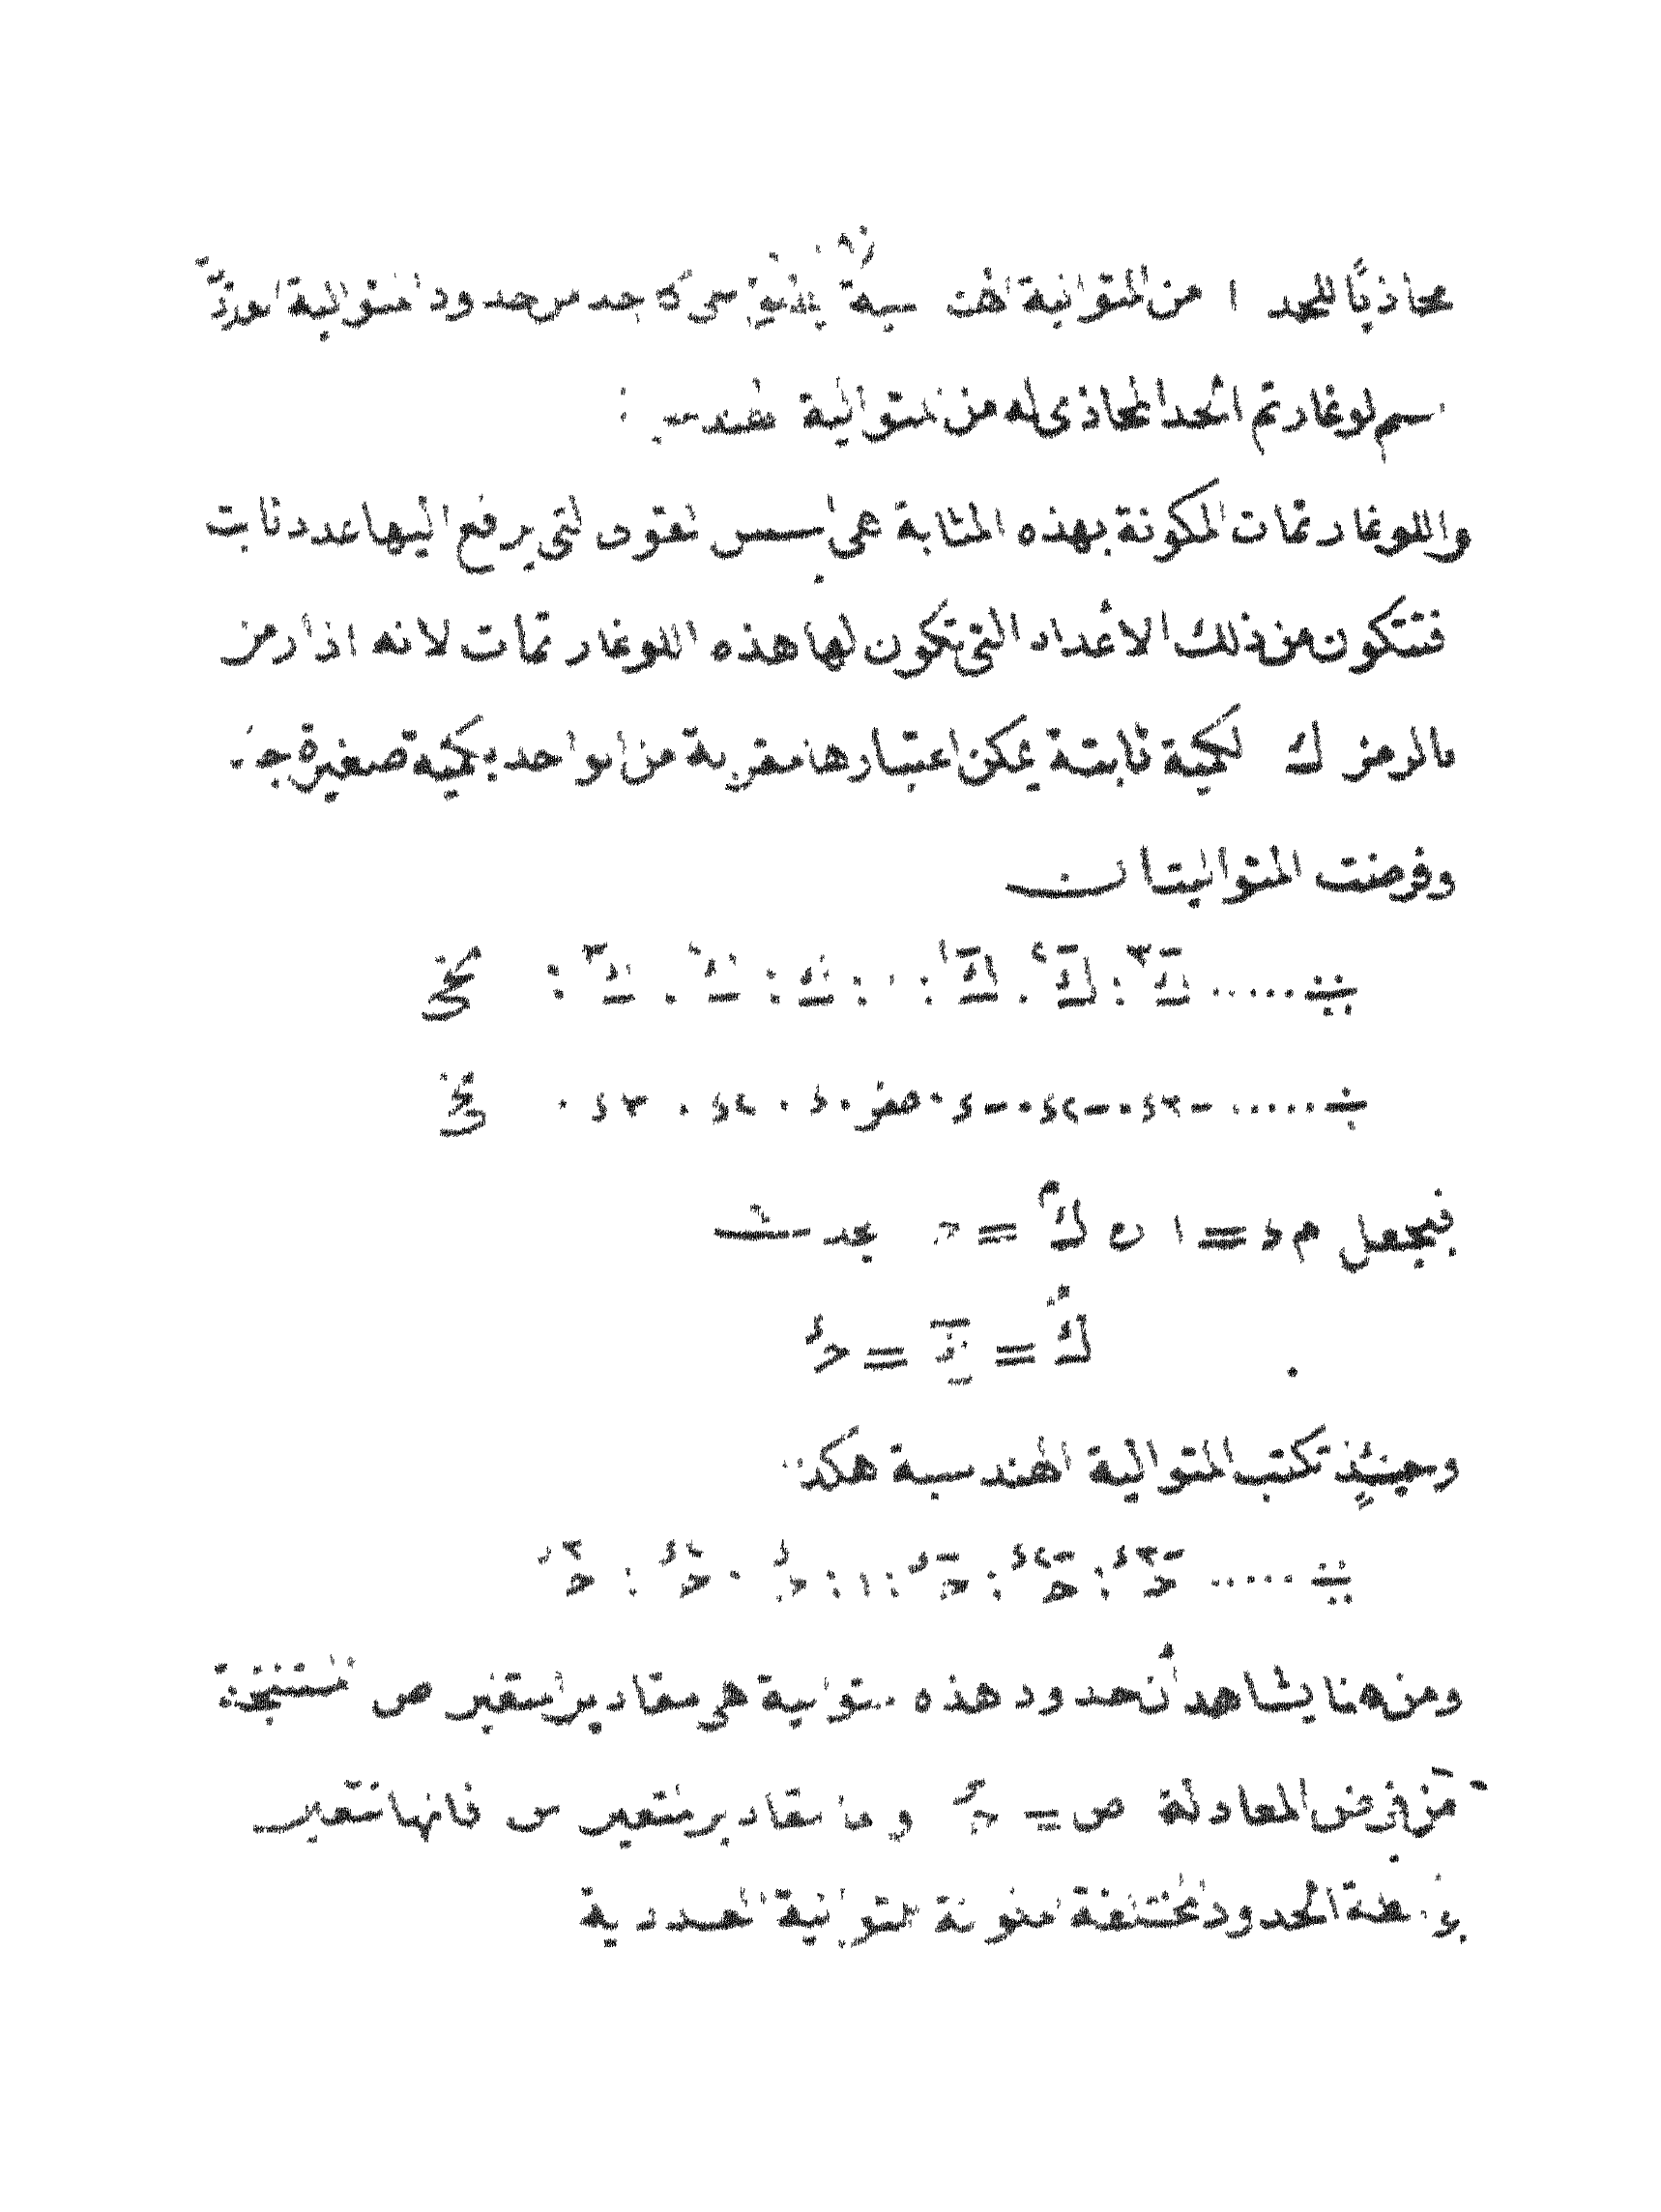 محاذيًا للحد ١ من المتوالية الهندسية يطلق على كل حد من حدود المتوالية العددية
اسم لوغارتم الحد المحاذى له من المتوالية الهندسية :
واللوغارتمات المكونة بهذه المثابة هى أسس القوى التى يرفع اليها عدد ثابت
فتتكون من ذلك الأعداد التى تكون لها هذه اللوغارتمات لانه اذا رمز
بالرمز ك لكمية ثابتة يمكن اعتبارها مقربة من الواحد بكمية صغيرة جدا
وفرضت المتواليتان
.....
÷ ..... -٣ء . -٢ء . -ء . صفر . ء . ٢ء . ٣ء . الخ
فبجعل م ء = ١ ن ك^م = ح يحدث
وحينئذٍ تكتب المتوالية الهندسية هكذا
÷÷ ..... ح^-٣ء : ح^-٢ء : ح^-ء : ١ : ح^ء : ح^٢ء : ح^٣ء
ومن هنا يشاهد أن حدود هذه المتوالية هى مقادير المتغير ص المستنتجة
من فرض المعادلة ص = ح^س وأما مقادير متغير س فانها تتعين
بواسطة الحدود المختلفة المكونة للمتوالية العددية